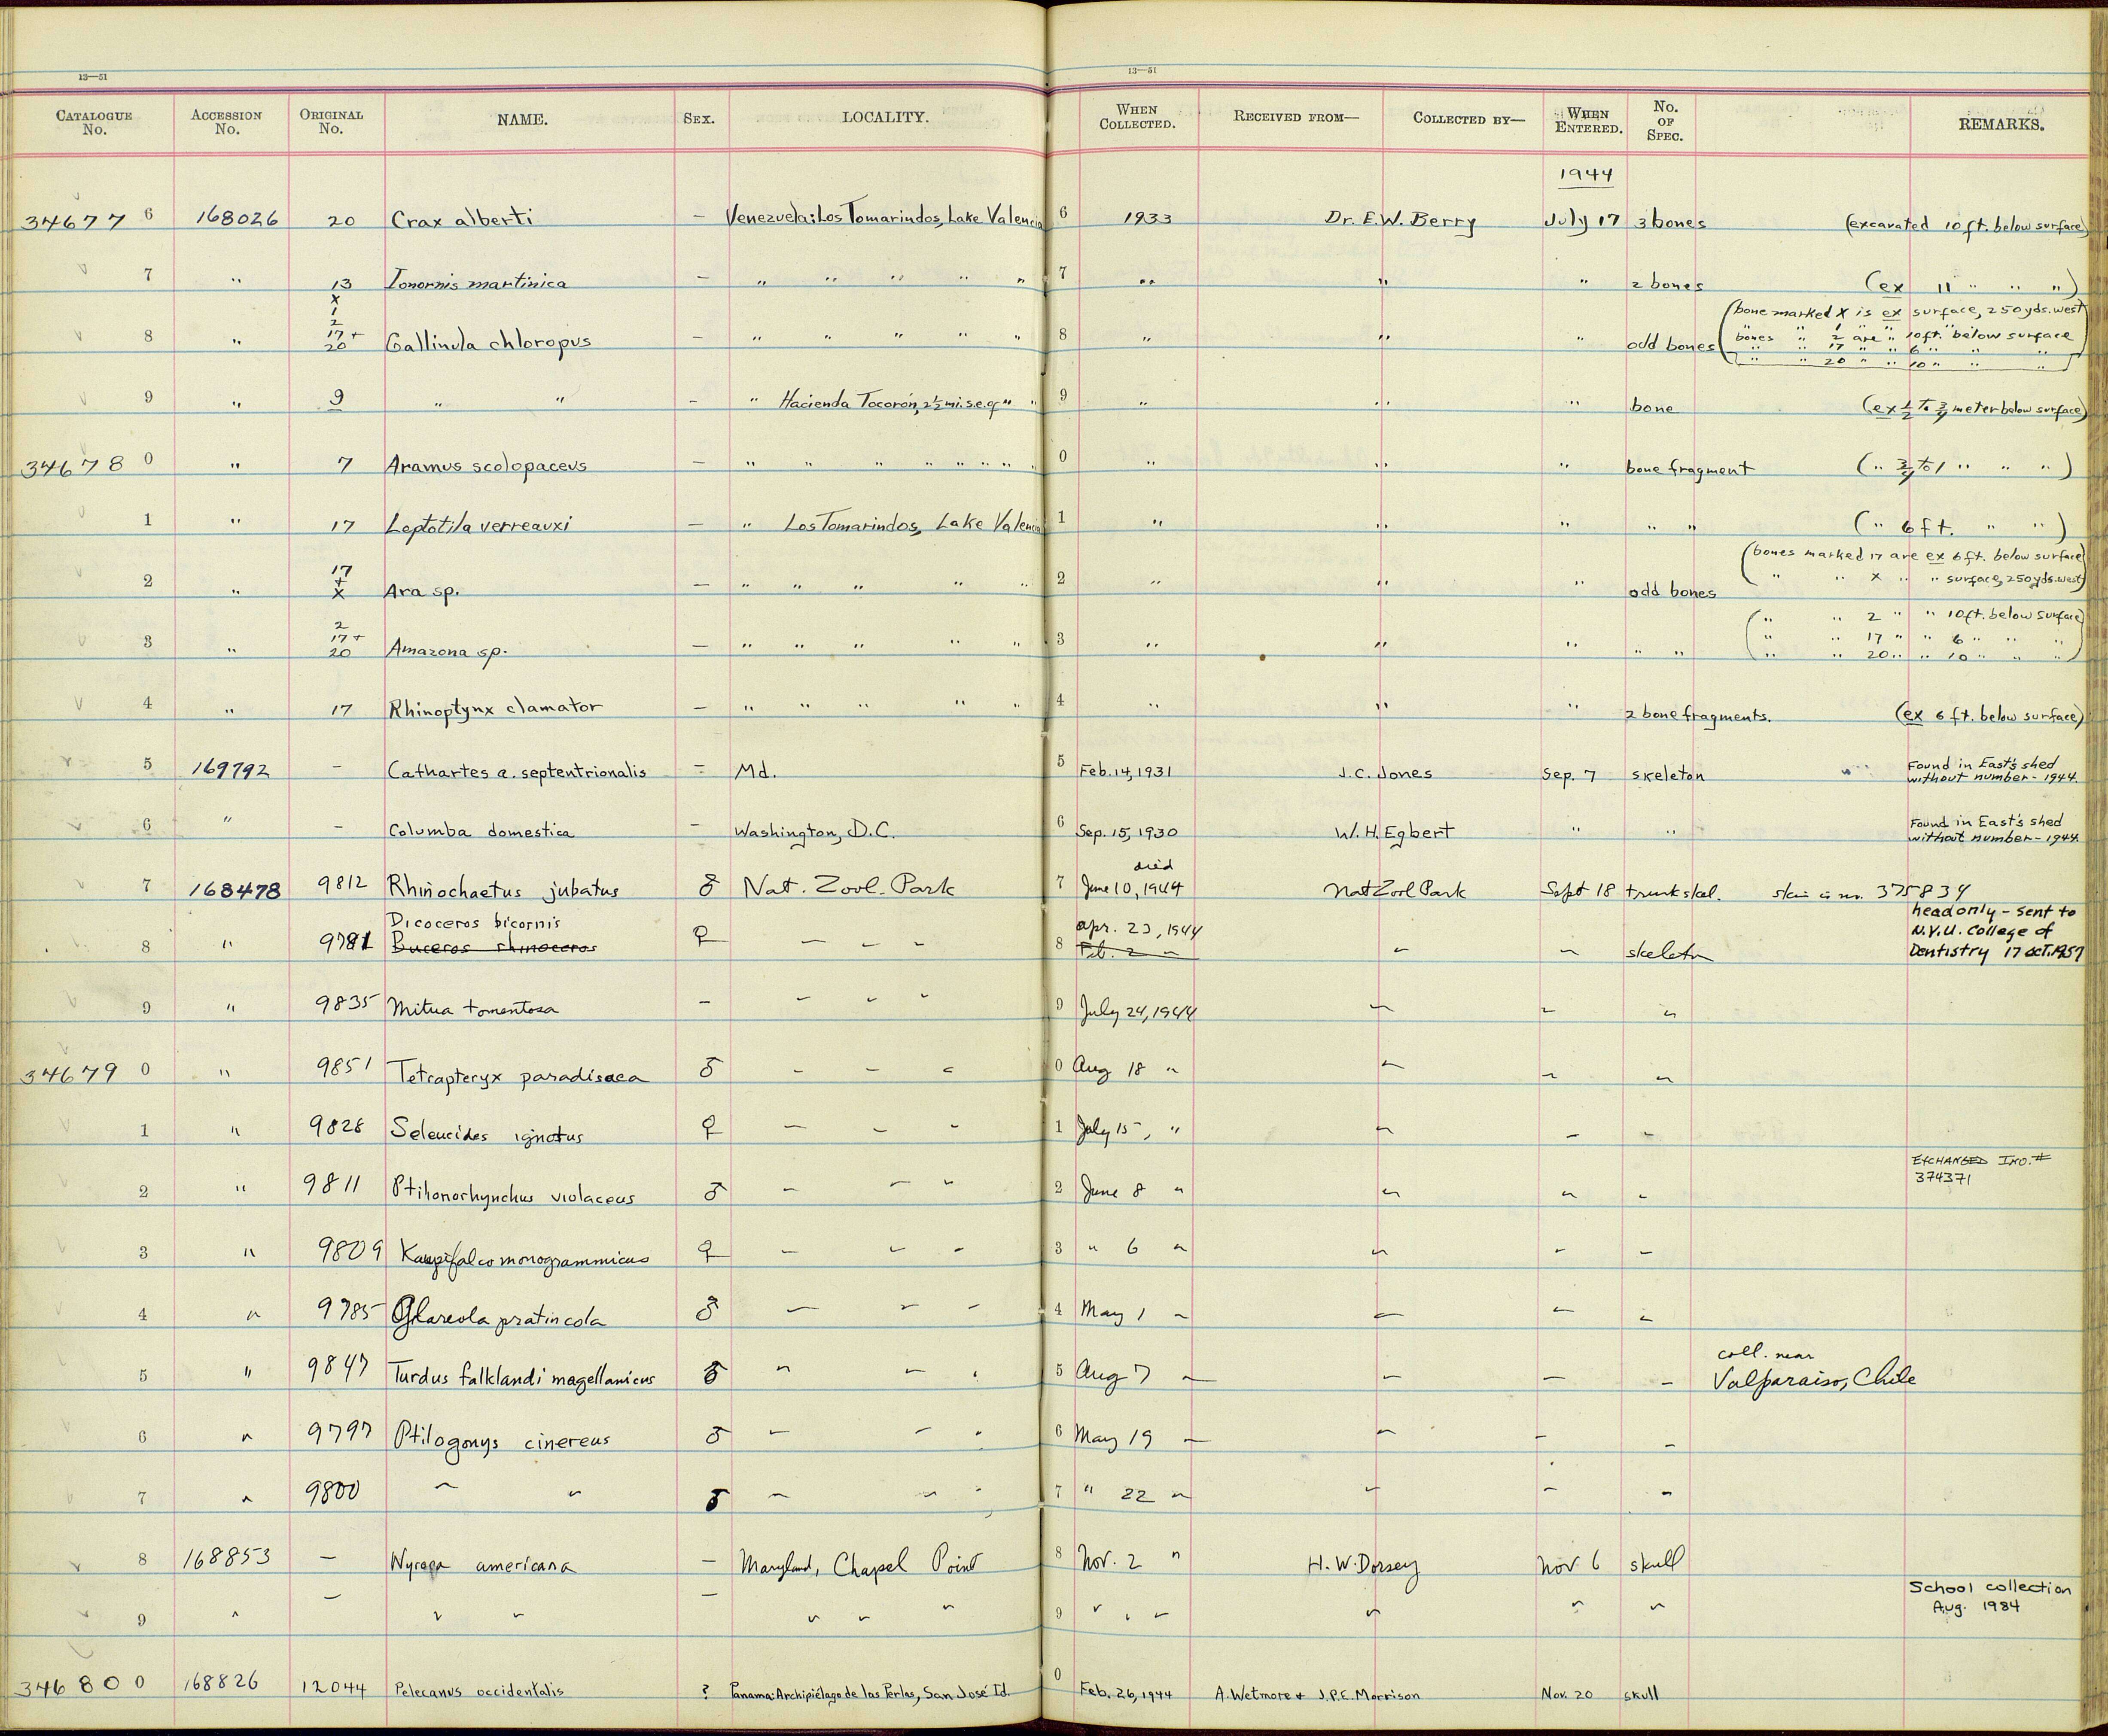 13—51
13—51
CATALOGUE No. ACCESSION No. ORIGINAL No. NAME. SEX. LOCALITY. WHEN COLLECTED. RECEIVED FROM— COLLECTED BY— WHEN ENTERED. No. OF SPEC. REMARKS.
1944
34677 6 168026 20 Crax alberti – Venezuela: Los Tomarindos, Lake Valencia 6 1933 Dr. E.W. Berry July 17 3 bones (excavated 10 ft. below surface)
7 " 13 Ionornis martinica – " " " " " 7 " " " 2 bones (ex 11 " " ")
8 " X 1 2 17 + 20 Gallinula chloropus – " " " " " 8 " " " odd bones (bone marked X is ex surface, 250 yds. west
" " 1 " " 10 ft. " below "
bones " 2 are " 10 ft. below surface
" " 17 " " 6 " " "
" " 20 " " 10 " " ")
9 " 9 " " – " Hacienda Tocorón, 2½ mi. s.e. of " " 9 " " " bone (ex ½ to ¾ meter below surface)
34678 0 " 7 Aramus scolopaceus – " " " " " " " " 0 " " " bone fragment (" ¾ to 1 " " ")
1 " 17 Leptotila verreauxi – " Los Tomarindos, Lake Valencia 1 " " " " " (" 6 ft. " ")
2 " 17 + X Ara sp. – " " " " " 2 " " " odd bones (bones marked 17 are ex 6 ft. below surface
" " X " " surface, 250 yds. west)
3 " 2 17 + 20 Amazona sp. – " " " " " 3 " " " " " (" " 2 " " 10 ft. below surface
" " 17 " " 6 " " "
" " 20 " " 10 " " ")
4 " 17 Rhinoptynx clamator – " " " " " 4 " " " 2 bone fragments. (ex 6 ft. below surface)
5 169792 – Cathartes a. septentrionalis – Md. 5 Feb. 14, 1931 J.C. Jones Sep. 7 skeleton Found in East's shed
without number – 1944.
6 " – Columba domestica – Washington, D.C. 6 Sep. 15, 1930 W. H. Egbert " " Found in East's shed
without number – 1944.
died
7 168478 9812 Rhinochaetus jubatus ♂ Nat. Zool. Park 7 June 10, 1944 Nat Zool Park Sept 18 trunk skel. skin is no. 375834
Dicoceros bicornis
8 " 9781 Buceros rhinoceros ♀ " " " 8 Apr. 23, 1944 Feb. 2 " " " skeleton head only – sent to
N.Y.U. College of
Dentistry 17 Oct. 1957
9 " 9835 Mitua tomentosa – " " " 9 July 24, 1944 " " "
34679 0 " 9851 Tetrapteryx paradisaea ♂ " " " 0 Aug 18 " " " "
1 " 9828 Seleucides ignotus ♀ " " " 1 July 15, " " " "
2 " 9811 Ptilonorhynchus violaceus ♂ " " " 2 June 8 " " " " EXCHANGED INO. #
374371
3 " 9809 Kaupifalco monogrammicus ♀ " " " 3 " 6 " " " "
4 " 9785 Glareola pratincola ♂ " " " 4 May 1 " " " "
5 " 9847 Turdus falklandi magellanicus ♂ " " " 5 Aug 7 " " " " coll. near
Valparaiso, Chile
6 " 9797 Ptilogonys cinereus ♂ " " " 6 May 19 " " " "
7 " 9800 " " ♂ " " " 7 " 22 " " " "
8 168853 – Nyroca americana – Maryland, Chapel Point 8 Nov. 2 " H. W. Dorsey Nov 6 skull
9 " – " " – " " " 9 " " " " " School collection
Aug. 1984
34680 0 168826 12044 Pelecanus occidentalis ? Panama: Archipiélago de las Perlas, San José Id. 0 Feb. 26, 1944 A. Wetmore & J.P.E. Morrison Nov. 20 skull